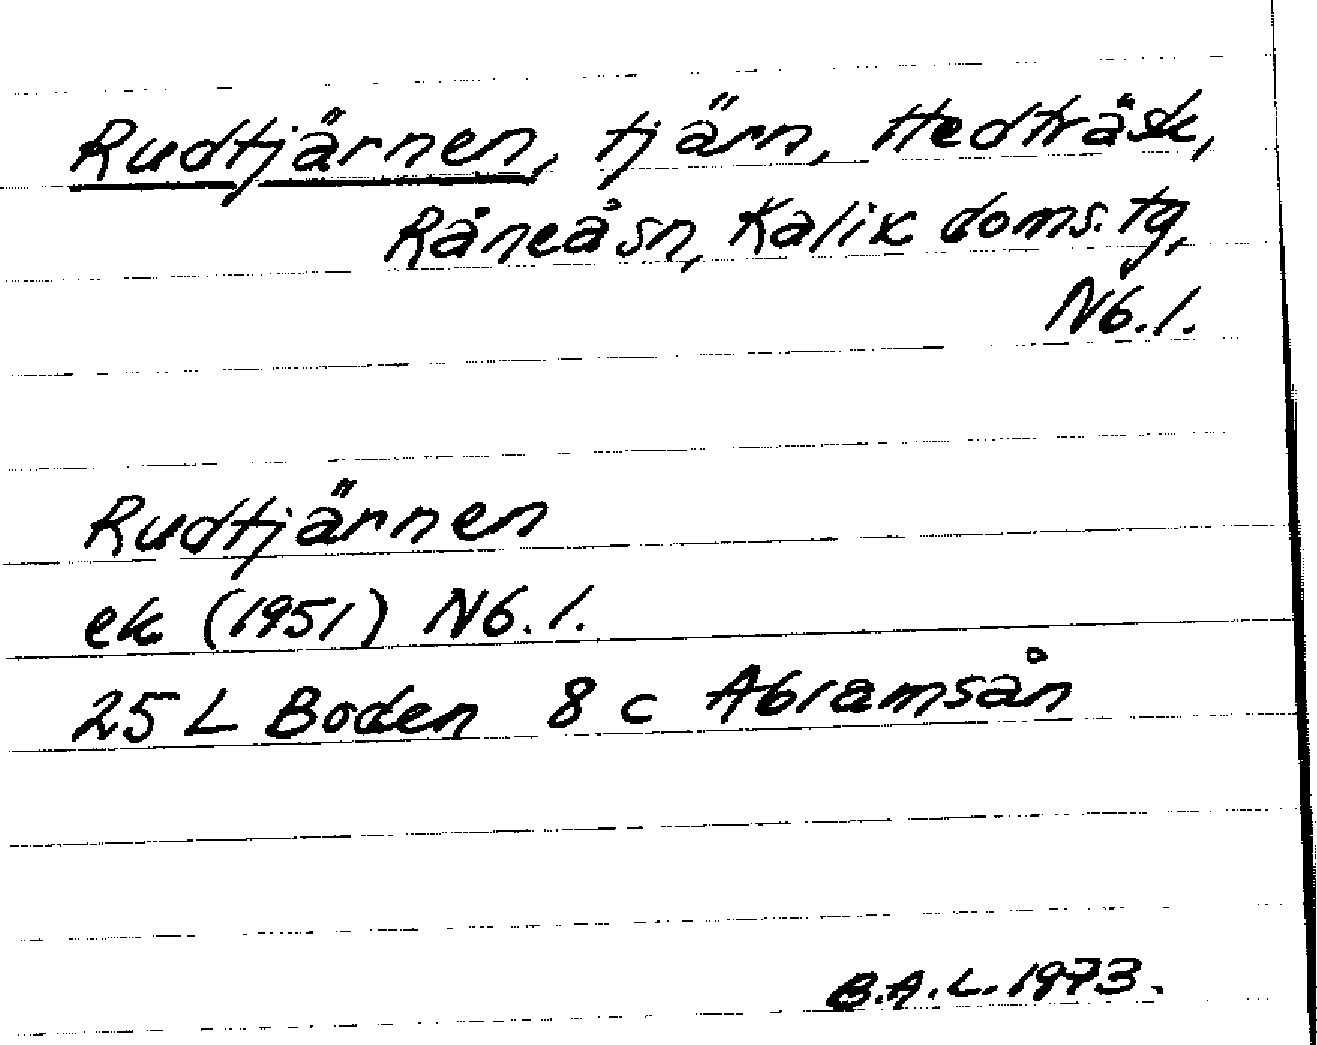 Rudtjärnen, tjärn, Hedträsk,
Råneå sn, Kalix doms. tg,
Nb. l.
Rudtjärnen
ek (1951) Nb. l.
25 L Boden 8 c Abramsån
B.A.L. 1973.